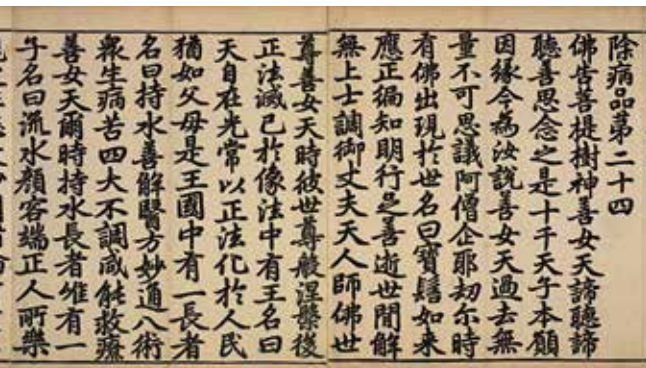 除病品第二十四
佛告菩提樹神善女天諦聽諦
聽善思念之是十千天子本願
因緣今為汝說善女天過去無
量不可思議阿僧企耶劫尒時
有佛出現於世名曰寶髻如來
應正徧知明行足善逝世間解
無上士調御丈夫天人師佛世
尊善女天時彼世尊般涅槃後
正法滅已於像法中有王名曰
天自在光常以正法化於人民
猶如父母是王國中有一長者
名曰持水善解醫方妙通八術
衆生病苦四大不調咸能救療
善女天爾時持水長者唯有一
子名曰流水顏容端正人所樂